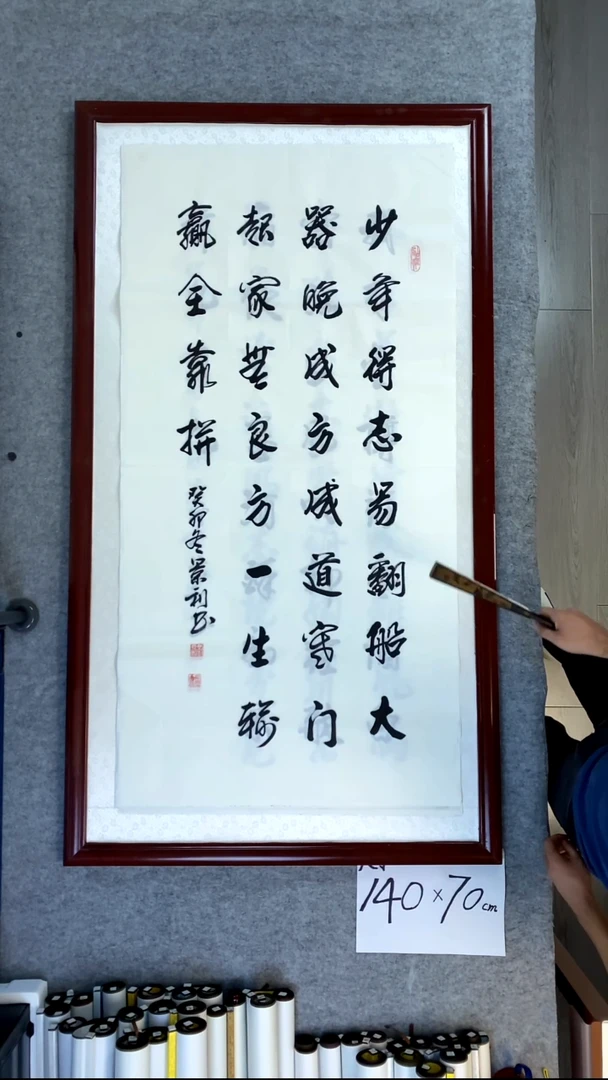 少年得志易翻船大
器晚成方成道寒门
起家无良方一生输
赢全靠拼
癸卯冬景利书
140×70cm